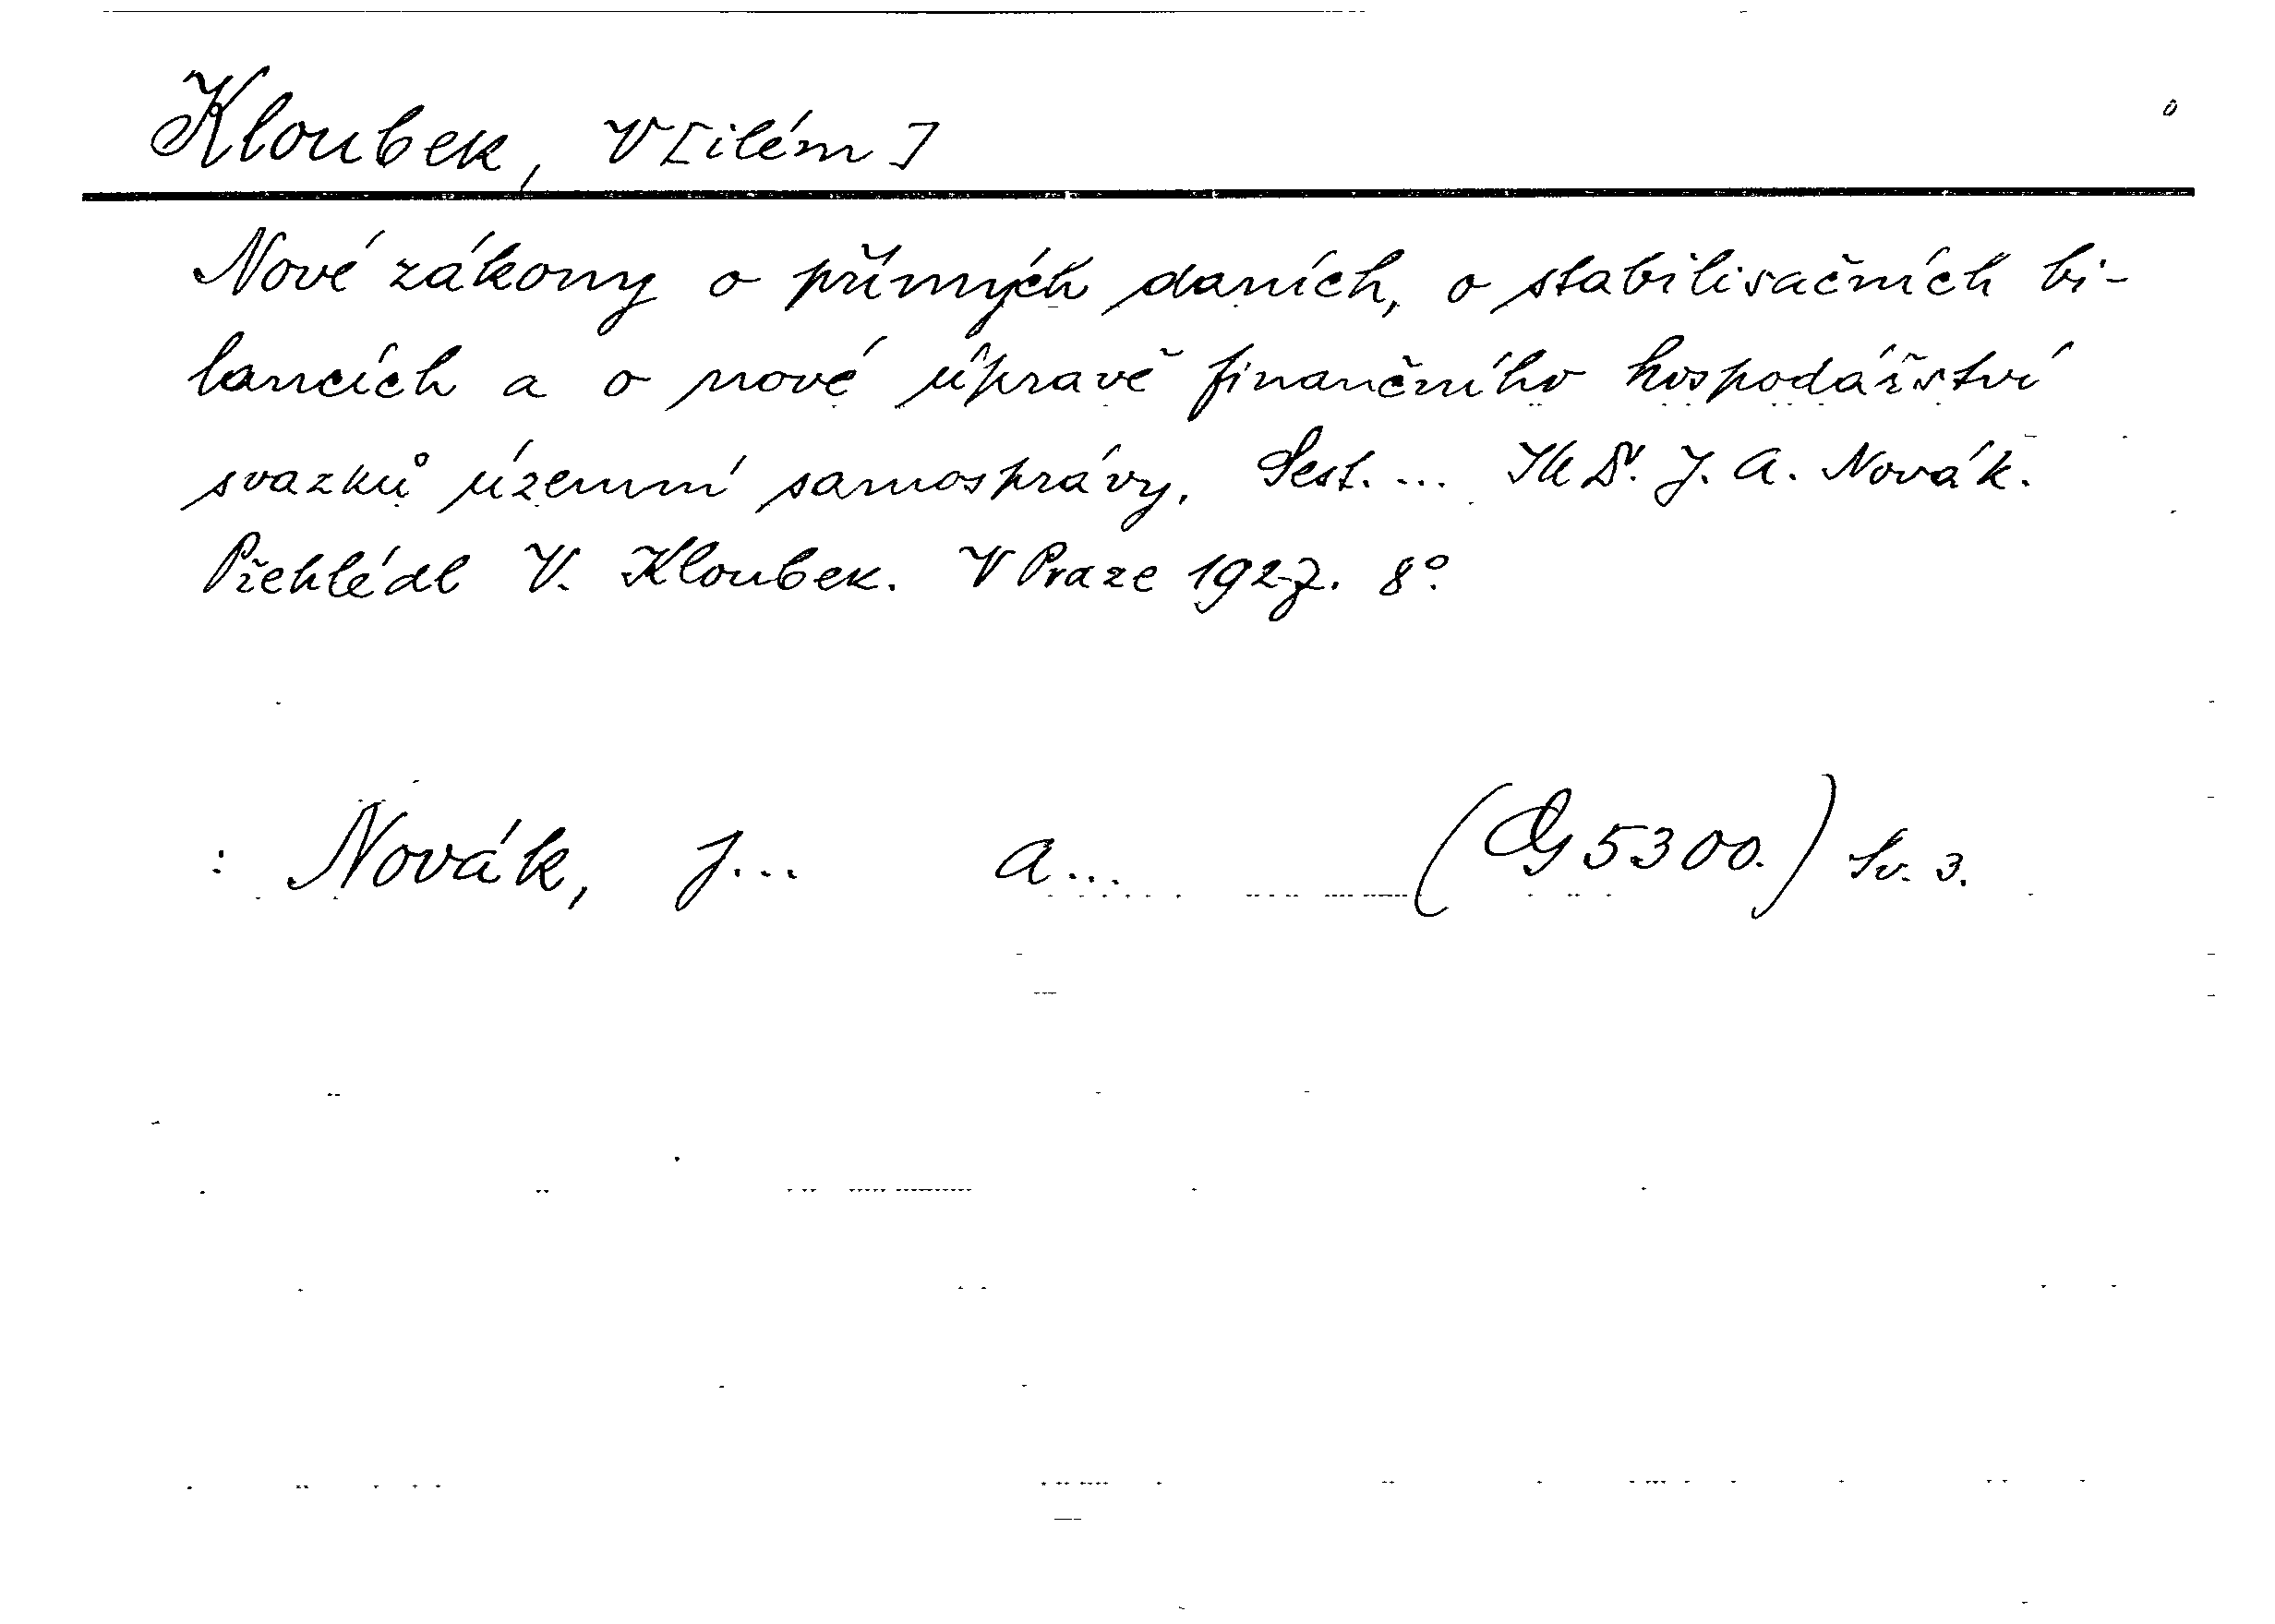 Kloubek, V[ilém]
Nové zákony o přímých daních, o stabilisačních bi-
lancích a o nové úpravě finančního hospodářství
svazků územní samosprávy. Sest. ... Dr. J. A. Novák.
Přehlédl V. Kloubek. V Praze 1927. 8°.
: Novák, J... A... (5300.) Sv. 3.